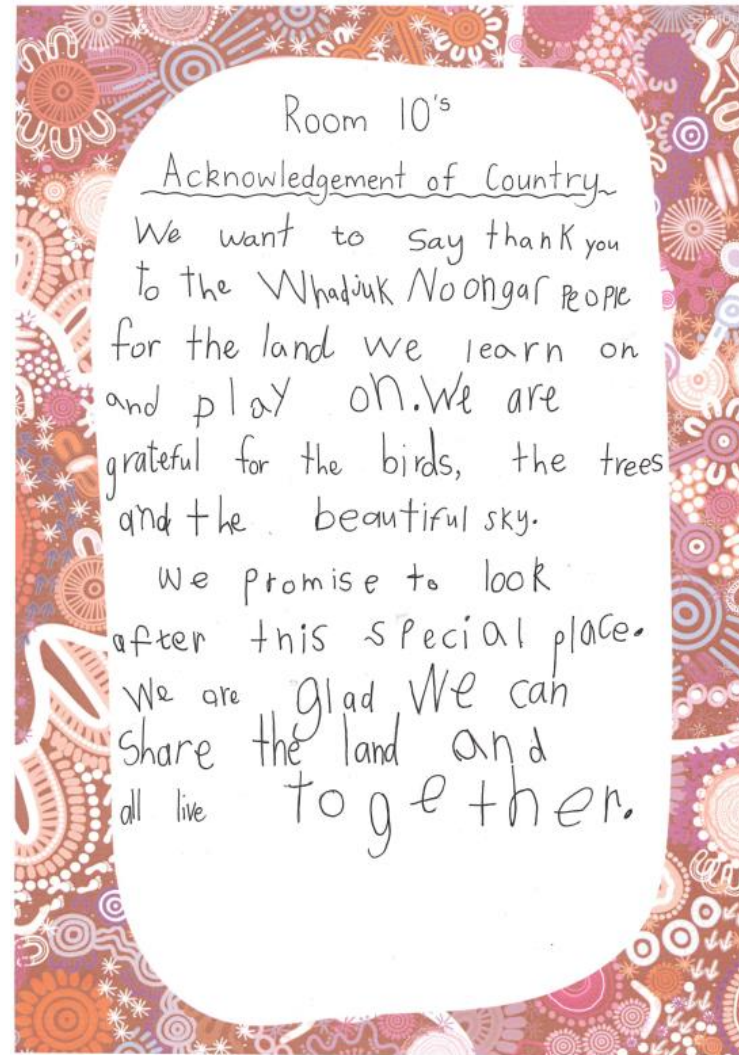 Room 10's
Acknowledgement of Country
We want to say thank you
to the Whadjuk Noongar People
for the land we learn on
and play on. We are
grateful for the birds, the trees
and the beautiful sky.
We promise to look
after this special place.
We are glad we can
share the land and
all live together.